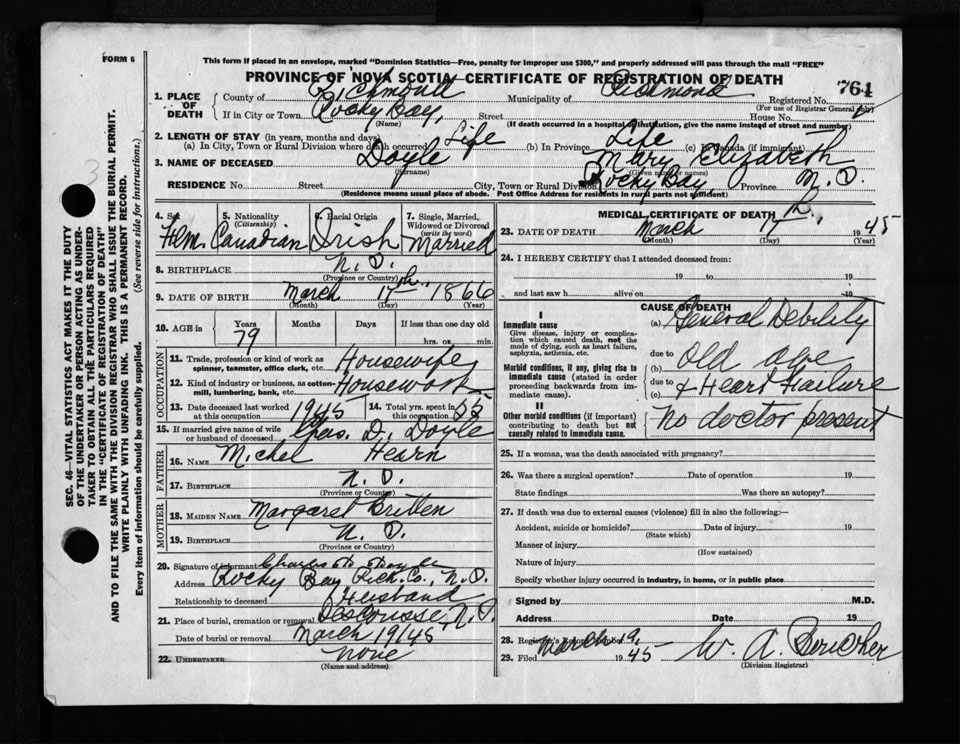 FORM 6
This form if placed in an envelope, marked "Dominion Statistics—Free, penalty for improper use $300," and properly addressed will pass through the mail "FREE"
PROVINCE OF NOVA SCOTIA—CERTIFICATE OF REGISTRATION OF DEATH
764
1. PLACE OF DEATH
County of Richmond Municipality of Richmond Registered No.
(For use of Registrar General only)
If in City or Town Rocky Bay, Street House No.
(Name) (If death occurred in a hospital or institution, give the name instead of street and number)
2. LENGTH OF STAY (in years, months and days)
(a) In City, Town or Rural Division where death occurred Life (b) In Province Life (c) In Canada (if immigrant)
3. NAME OF DECEASED Doyle Mary Elizabeth
(Surname) (Given name or names)
RESIDENCE No. Street City, Town or Rural Division Rocky Bay, Province N.S.
(Residence means usual place of abode. Post Office Address for residents in rural parts not sufficient)
4. Sex 5. Nationality 6. Racial Origin 7. Single, Married, Widowed or Divorced
(Citizenship) (write the word)
Fem. Canadian Irish Married
8. BIRTHPLACE N.S.
(Province or Country)
9. DATE OF BIRTH March 17th, 1866
(Month) (Day) (Year)
10. AGE in Years Months Days If less than one day old
79 hrs. or min.
OCCUPATION
11. Trade, profession or kind of work as spinner, teamster, office clerk, etc. Housewife
12. Kind of industry or business, as cotton-mill, lumbering, bank, etc. Housework
13. Date deceased last worked at this occupation 1945 14. Total yrs. spent in this occupation 55
15. If married give name of wife or husband of deceased Chas. D. Doyle
FATHER
16. NAME Michel Hearn
17. BIRTHPLACE N.S.
(Province or Country)
MOTHER
18. MAIDEN NAME Margaret Britten
19. BIRTHPLACE N.S.
(Province or Country)
20. Signature of informant Charles
Address Rocky Bay Rich. Co., N.S.
Relationship to deceased Husband
21. Place of burial, cremation or removal Descousse, N.S.
Date of burial or removal March 19/45
22. UNDERTAKER None
(Name and address)
MEDICAL CERTIFICATE OF DEATH
23. DATE OF DEATH March 17th, 1945
(Month) (Day) (Year)
24. I HEREBY CERTIFY that I attended deceased from:
19 to 19
and last saw h alive on 19
CAUSE OF DEATH
I
Immediate cause
Give disease, injury or complication which caused death, not the mode of dying, such as heart failure, asphyxia, asthenia, etc.
(a) General Debility
due to
Morbid conditions, if any, giving rise to immediate cause (stated in order proceeding backwards from immediate cause).
(b) old age
due to
(c) & Heart Failure
II
Other morbid conditions (if important) contributing to death but not causally related to immediate cause.
No doctor present
25. If a woman, was the death associated with pregnancy?
26. Was there a surgical operation? Date of operation 19
State findings Was there an autopsy?
27. If death was due to external causes (violence) fill in also the following:—
Accident, suicide or homicide? Date of injury 19
(State which)
Manner of injury
(How sustained)
Nature of injury
Specify whether injury occurred in industry, in home, or in public place
Signed by M.D.
Address Date 19
28. Registrar's Record Number
29. Filed March 19, 1945 W. A.
(Division Registrar)
SEC. 46—VITAL STATISTICS ACT MAKES IT THE DUTY
OF THE UNDERTAKER OR PERSON ACTING AS UNDER-
TAKER TO OBTAIN ALL THE PARTICULARS REQUIRED
IN THE "CERTIFICATE OF REGISTRATION OF DEATH"
AND TO FILE THE SAME WITH THE DIVISION REGISTRAR WHO SHALL ISSUE THE BURIAL PERMIT.
WRITE PLAINLY WITH UNFADING INK. THIS IS A PERMANENT RECORD.
Every item of information should be carefully supplied. (See reverse side for instructions.)
3